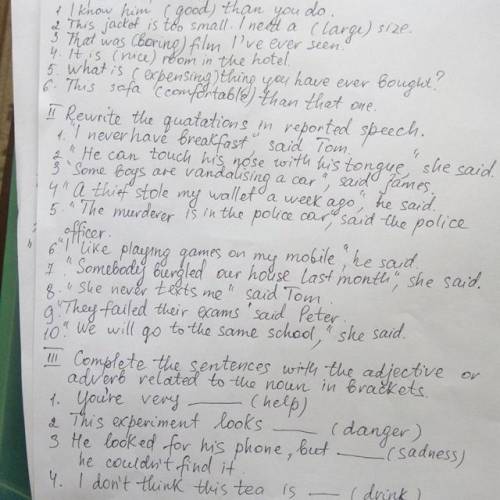 1. I know him (good) than you do.
2 This jacket is too small. I need a (large) size.
3 That was (boring) film I've ever seen.
4. It is (nice) room in the hotel.
5. What is (expensing) thing you have ever bought?
6. This sofa (comfortable) than that one.
II Rewrite the quatations in reported speech.
1. "I never have breakfast", said Tom.
2 "He can touch his nose with his tongue," she said.
3 "Some boys are vandalising a car", said James.
4 "A thief stole my wallet a week ago", he said.
5. "The murderer is in the police car", said the police
officer.
6 "I like playing games on my mobile", he said.
7. "Somebody burgled our house last month", she said.
8. "She never texts me" said Tom.
9 "They failed their exams" said Peter.
10. "We will go to the same school," she said.
III Complete the sentences with the adjective or
adverb related to the noun in brackets.
1. You're very ____ (help)
2 This experiment looks ____ (danger)
3 He looked for his phone, but ____ (sadness)
he couldn't find it
4. I don't think this tea is ____ (drink)